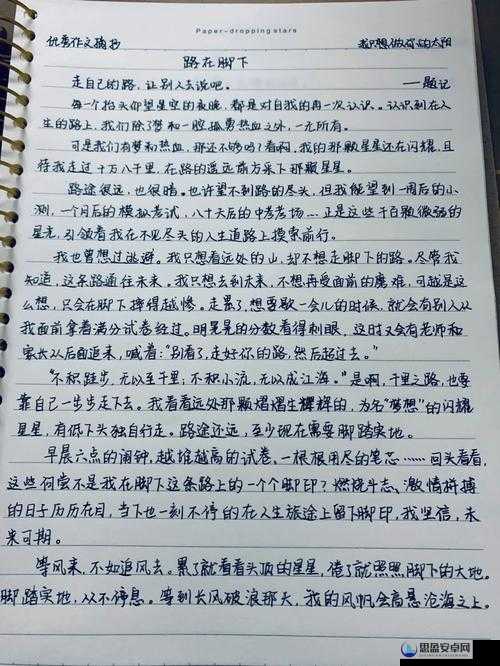 Paper-dropping stars
优秀作文摘抄
我只想做你的太阳
路在脚下
走自己的路，让别人去说吧。 ——题记
每一个抬头仰望星空的夜晚，都是对自我的再一次认识。认识到在人
生的路上，我们除了梦和一腔孤勇热血之外，一无所有。
可是我们有梦和热血，那还不够吗？看啊，我的那颗星星还在闪耀，且
待我走过十万八千里，在路的遥远前方采下那颗星星。
路途很远，也很暗。也许望不到路的尽头，但我能望到一周后的小
测，一个月后的模拟考试，八十天后的中考考场……正是这些千百颗微弱的
星光，引领着我在不见尽头的人生道路上摸索前行。
我也曾想过逃避。我只想看远处的山，却不想走脚下的路。尽管我
知道，这条路通往未来。我只想去到未来，不想再受面前的磨难，可越是这
么想，只会在脚下摔得越惨。走累了，想要歇一会儿的时候，就会有别人从
我面前拿着满分试卷经过。明晃晃的分数看得刺眼，这时又会有老师和
家长从后面追来，喊着：“别看了，走好你的路，然后超过去。”
“不积跬步，无以至千里；不积小流，无以成江海。”是啊，千里之路，也要
靠自己一步步走下去。我看着远处那颗熠熠生辉的，为名“梦想”的闪耀
星星，有低下头独自行走。路途还远，至少现在需要脚踏实地。
早晨六点的闹钟，越堆越高的试卷，一根根用尽的笔芯……回头看看，
这些何尝不是我在脚下这条路上的一个个脚印？燃烧斗志、激情拼搏
的日子历历在目，当下也一刻不停的在人生旅途上留下脚印，我坚信，未
来可期。
等风来，不如追风去。累了就看看头顶的星星，倦了就照照脚下的大地。
脚踏实地，从不停息。等到长风破浪那天，我的风帆会高悬沧海之上。
思盈安卓网